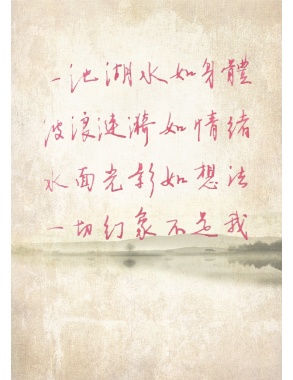 一池湖水如身體
波浪涟漪如情绪
水面光影如想法
一切幻象不是我